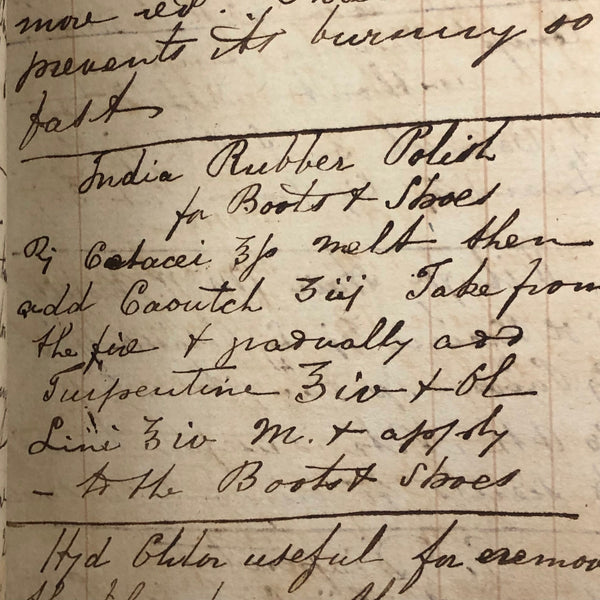 more red.
prevents its burning so
fast
India Rubber Polish
for Boots & Shoes
℞ Cetacei ʒſs melt then
add Caoutch ʒiij Take from
the fire & gradually add
Turpentine ʒiv & Ol
Lini ʒiv M. & apply
- to the Boots & Shoes
Hyd Chlor useful for remov
the